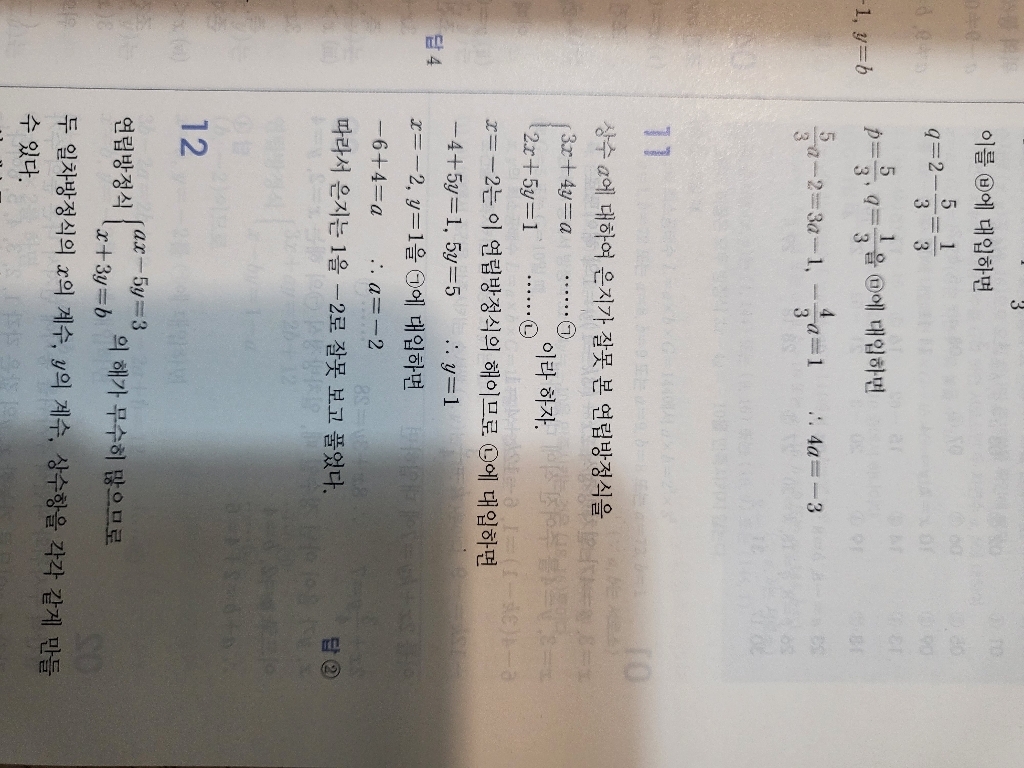 -1, y=b
답 4
이를 ㉥에 대입하면
q=2-5/3=1/3
p=5/3, q=1/3을 ㉤에 대입하면
5/3a-2=3a-1, -4/3a=1 ∴ 4a=-3
11
상수 a에 대하여 은지가 잘못 본 연립방정식을
{3x+4y=a ……㉠
{2x+5y=1 ……㉡ 이라 하자.
x=-2는 이 연립방정식의 해이므로 ㉡에 대입하면
-4+5y=1, 5y=5 ∴ y=1
x=-2, y=1을 ㉠에 대입하면
-6+4=a ∴ a=-2
따라서 은지는 1을 -2로 잘못 보고 풀었다.
답 ②
12
연립방정식 {ax-5y=3
{x+3y=b 의 해가 무수히 많으므로
두 일차방정식의 x의 계수, y의 계수, 상수항을 각각 같게 만들
수 있다.